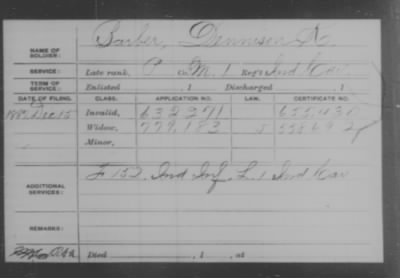 NAME OF SOLDIER: Barber, Dennison K.
SERVICE: Late rank, P Co. M, 1 Reg't Ind Cav
TERM OF SERVICE: Enlisted , 1 Discharged , 1
DATE OF FILING. CLASS. APPLICATION NO. LAW. CERTIFICATE NO.
Dec 15 Invalid, 632271
Widow, 779,183
Minor,
ADDITIONAL SERVICES: F 152. Ind Inf. L. 1 Ind Cav
REMARKS:
Died , 1 , at